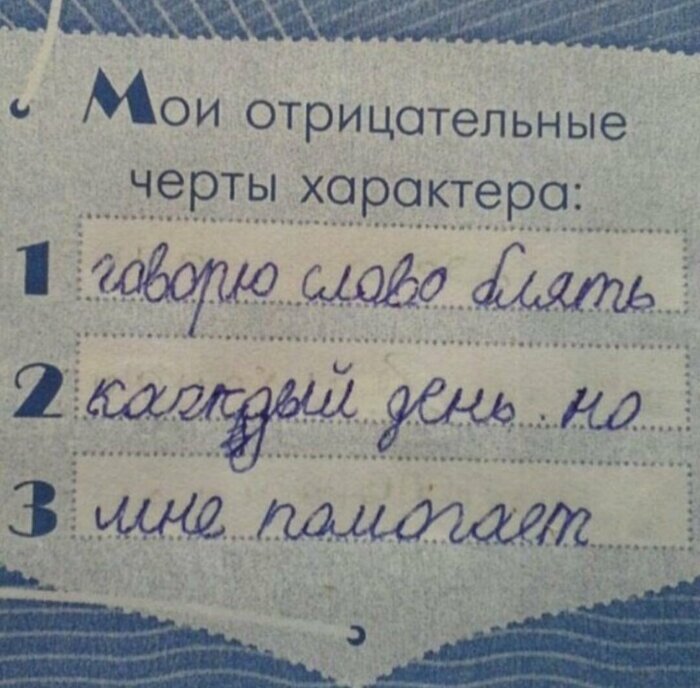 Мои отрицательные
черты характера:
1 говорю слово блять
2 каждый день но
3 мне памогает